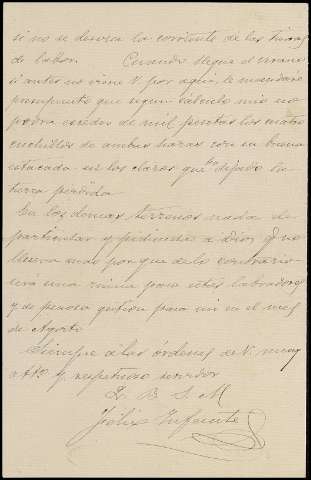 si no se desvia la corriente de las tierras
de labor. Cuando llegue el verano
si antes no viene V. por aqui, le mandaré
presupuesto que segun cálculo mio no
podra exceder de mil pesetas los cuatro
cuchillos de ambas horas con su buena
estacada en los claros que ha dejado la
tierra perdida
En los demas terrenos nada de
particular y pidiendo a Dios q no
llueva mas por que de lo contrario
será una ruina para estos labradores
y de penosa gestion para mi en el mes
de Agosto.
Siempre á las órdenes de V. muy
atto y respetuoso servidor
Q B S M
Félix Infante